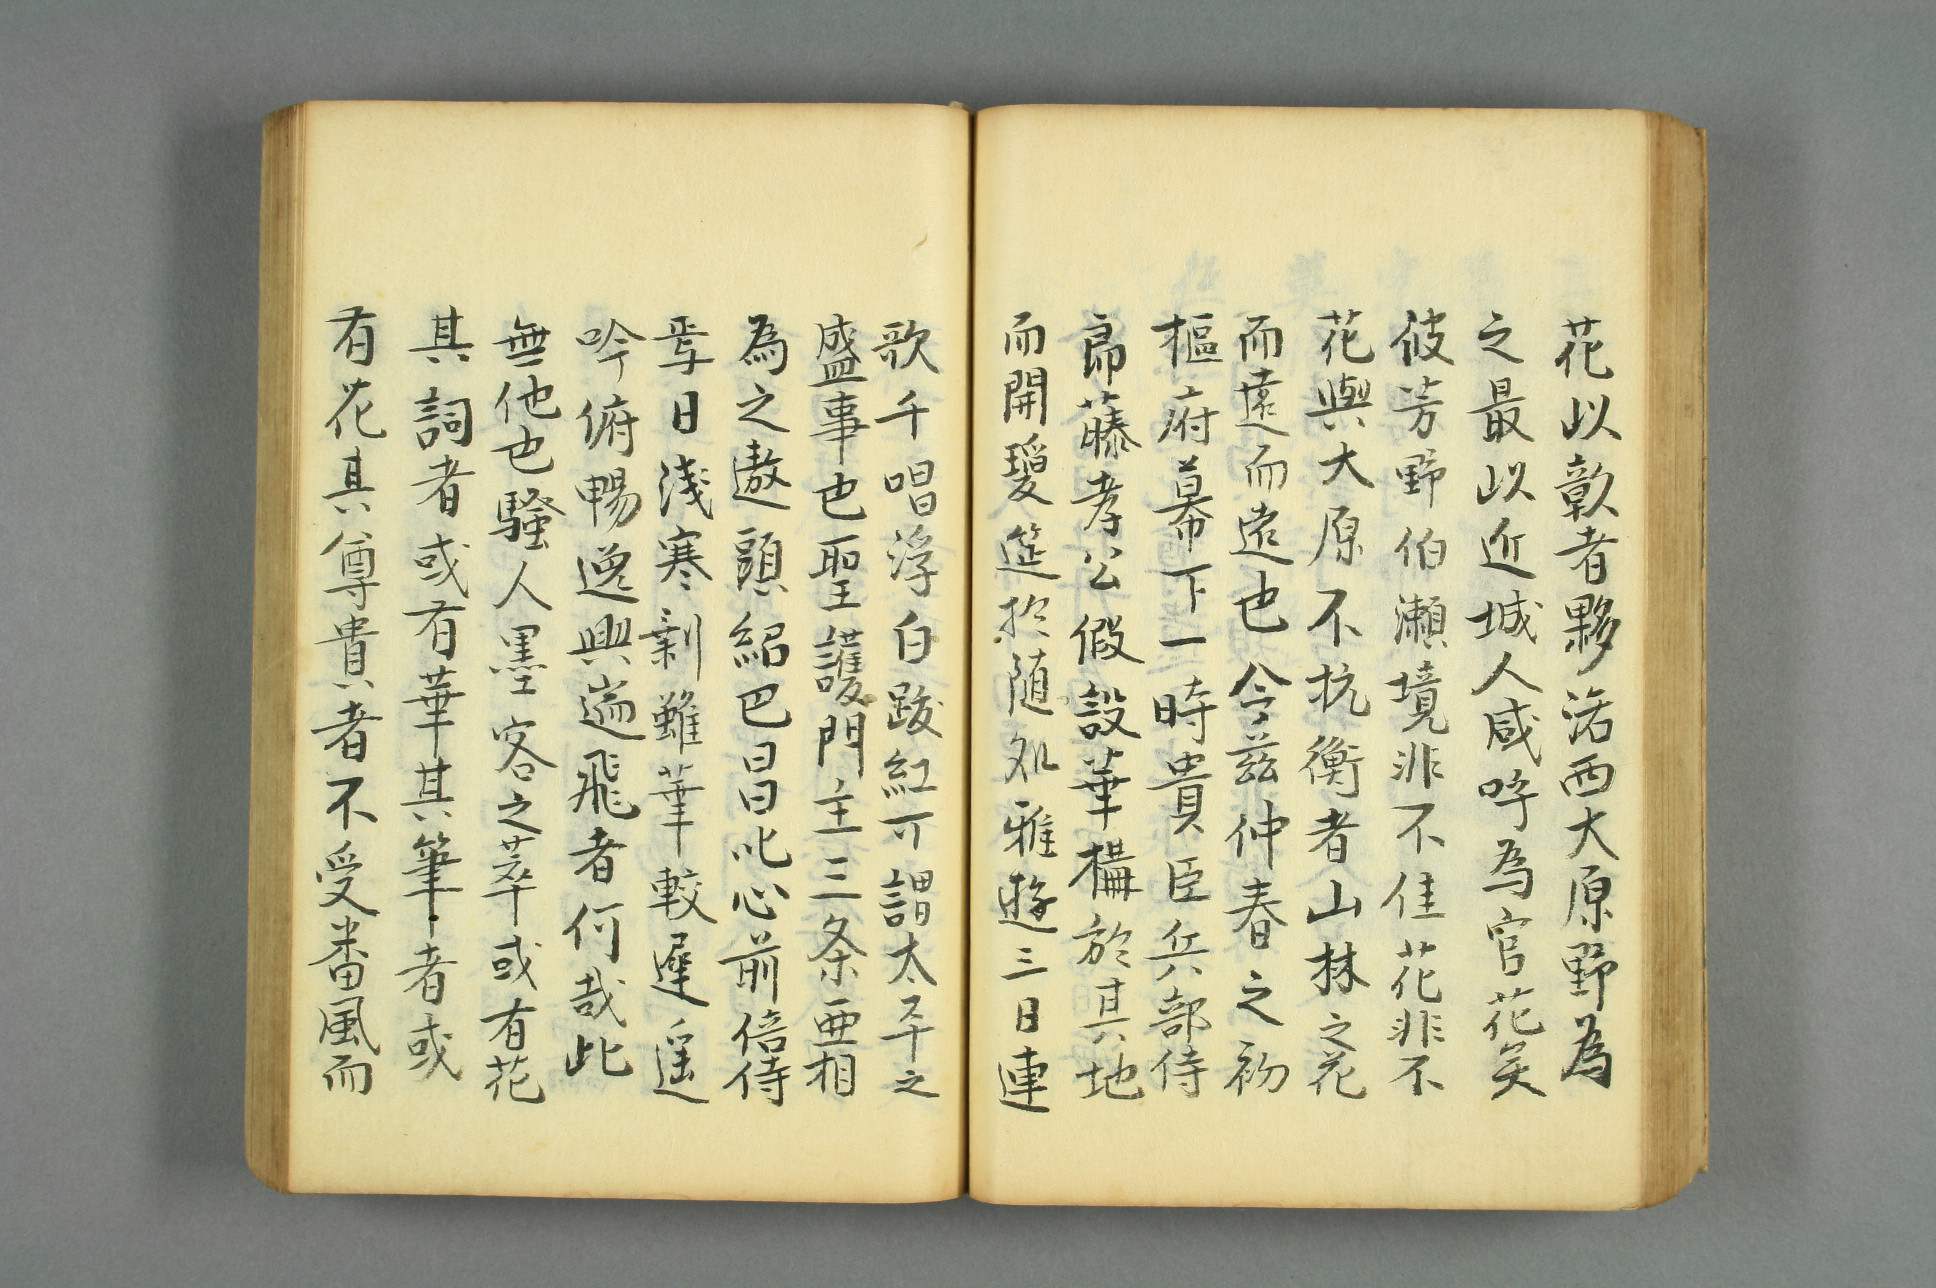 花以彰者夥洛西大原野為
之最以近城人咸呼為官花矣
彼芳野伯瀬境非不佳花非不
花與大原不抗衡者山林之花
而遠而遠也今茲仲春之初
樞府幕下一時貴臣兵部侍
郎藤孝公假設華構於其地
而開瓊筵於随処雅遊三日連
歌千唱浮白跋紅可謂太平之
盛事也聖護門主三条亜相
為之遨頭紹巴昌叱心前倍侍
焉日淺寒剩雖華較遲遥
吟俯暢逸興遄飛者何哉此
無他也騒人墨客之萃或有花
其詞者或有華其筆者或
有花其尊貴者不受番風而